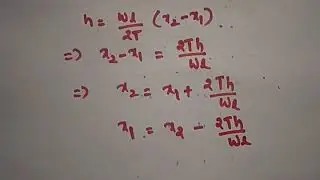 h = Wl/2T (x₂-x₁)
=> x₂-x₁ = 2Th/Wl
=> x₂ = x₁ + 2Th/Wl
x₁ = x₂ - 2Th/Wl